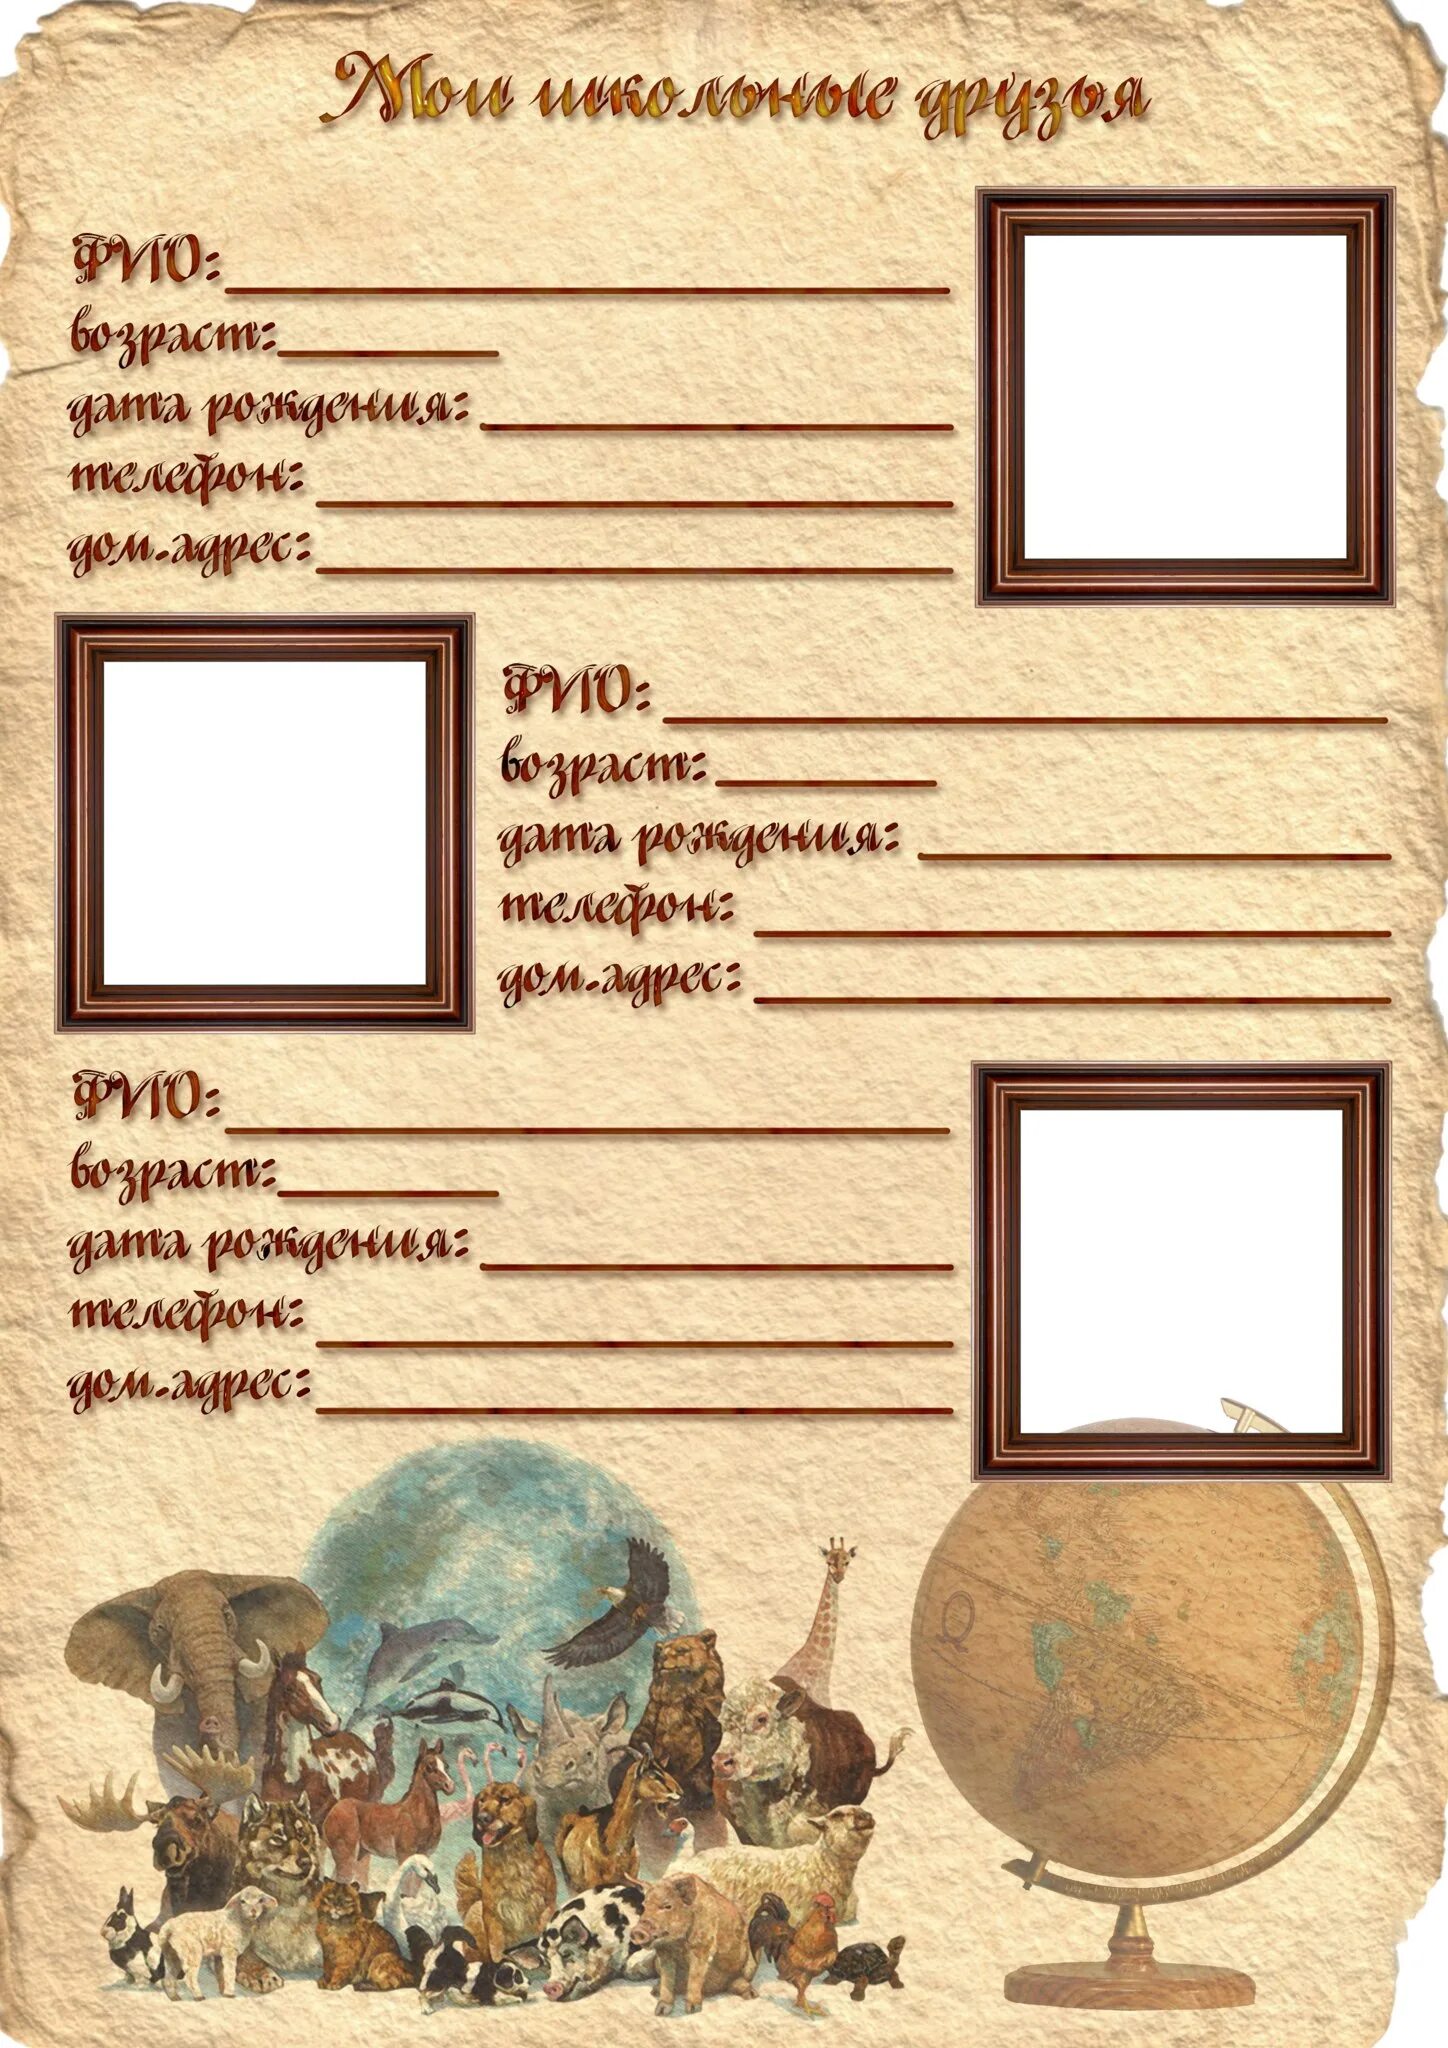 Мои школьные друзья
ФИО:
возраст:
дата рождения:
телефон:
дом.адрес:
ФИО:
возраст:
дата рождения:
телефон:
дом.адрес:
ФИО:
возраст:
дата рождения:
телефон:
дом.адрес: